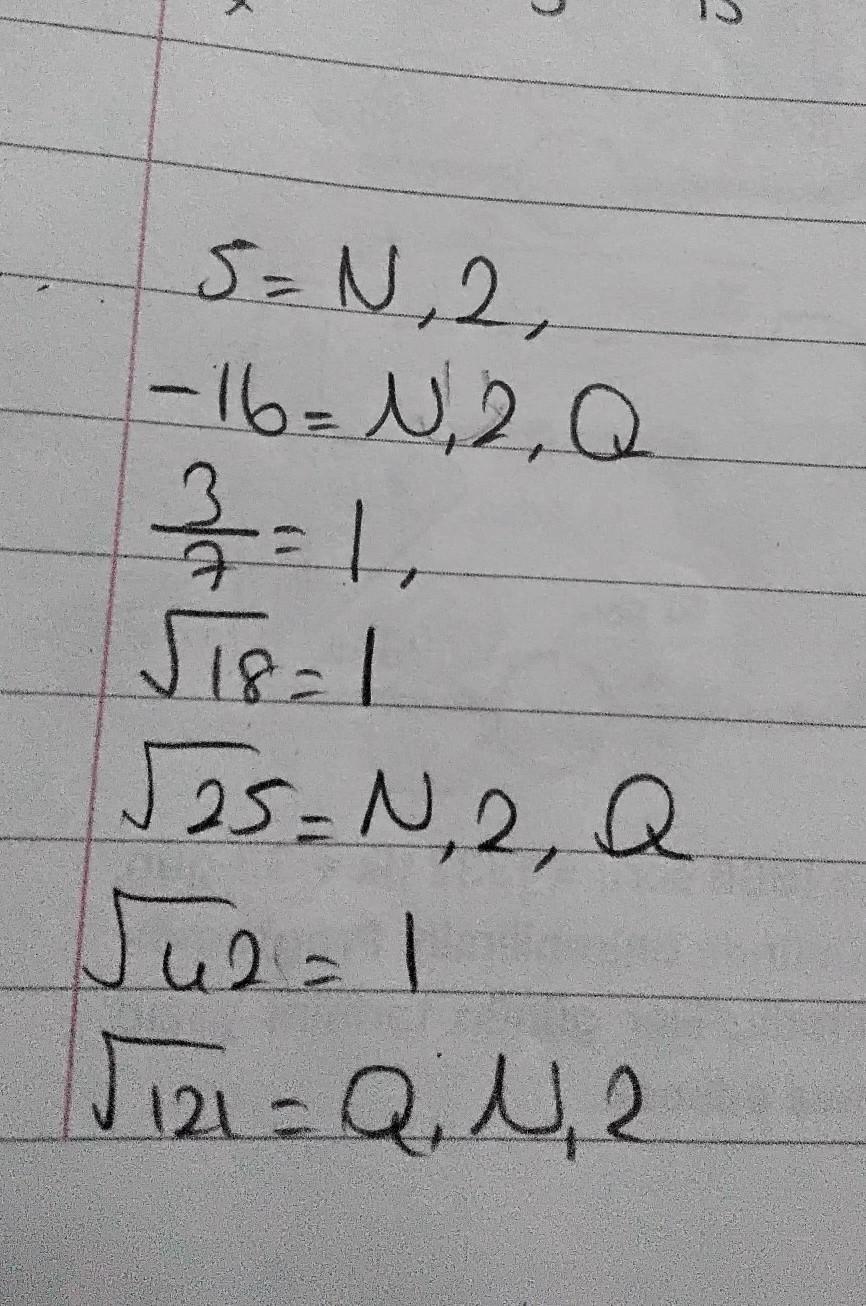 5 = N, 2,
-16 = N, 2, Q
3/7 = 1,
√18 = 1
√25 = N, 2, Q
√42 = 1
√121 = Q, N, 2